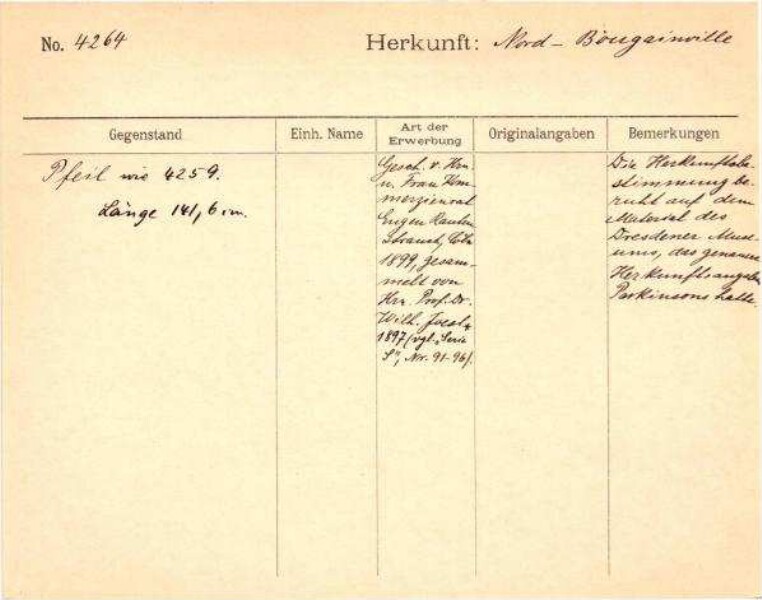 No. 4264 Herkunft: Nord - Bougainville
Gegenstand
Einh. Name
Art der
Erwerbung
Originalangaben
Bemerkungen
Pfeil wie 4259.
Länge 141,6 cm.
Gesch. v. Hrn.
u. Frau Kom-
merzienrat
Eugen Rauten-
strauch, Cöln
1899, gesam-
melt von
Hrn. Prof. Dr.
Wilh. Joest
1897 (vgl. "Serie
S", Nr. 91-96).
Die Herkunftsbe-
stimmung be-
ruht auf dem
Material des
Dresdener Muse-
ums, das genaue
Herkunftsangaben
Parkinsons hatte.